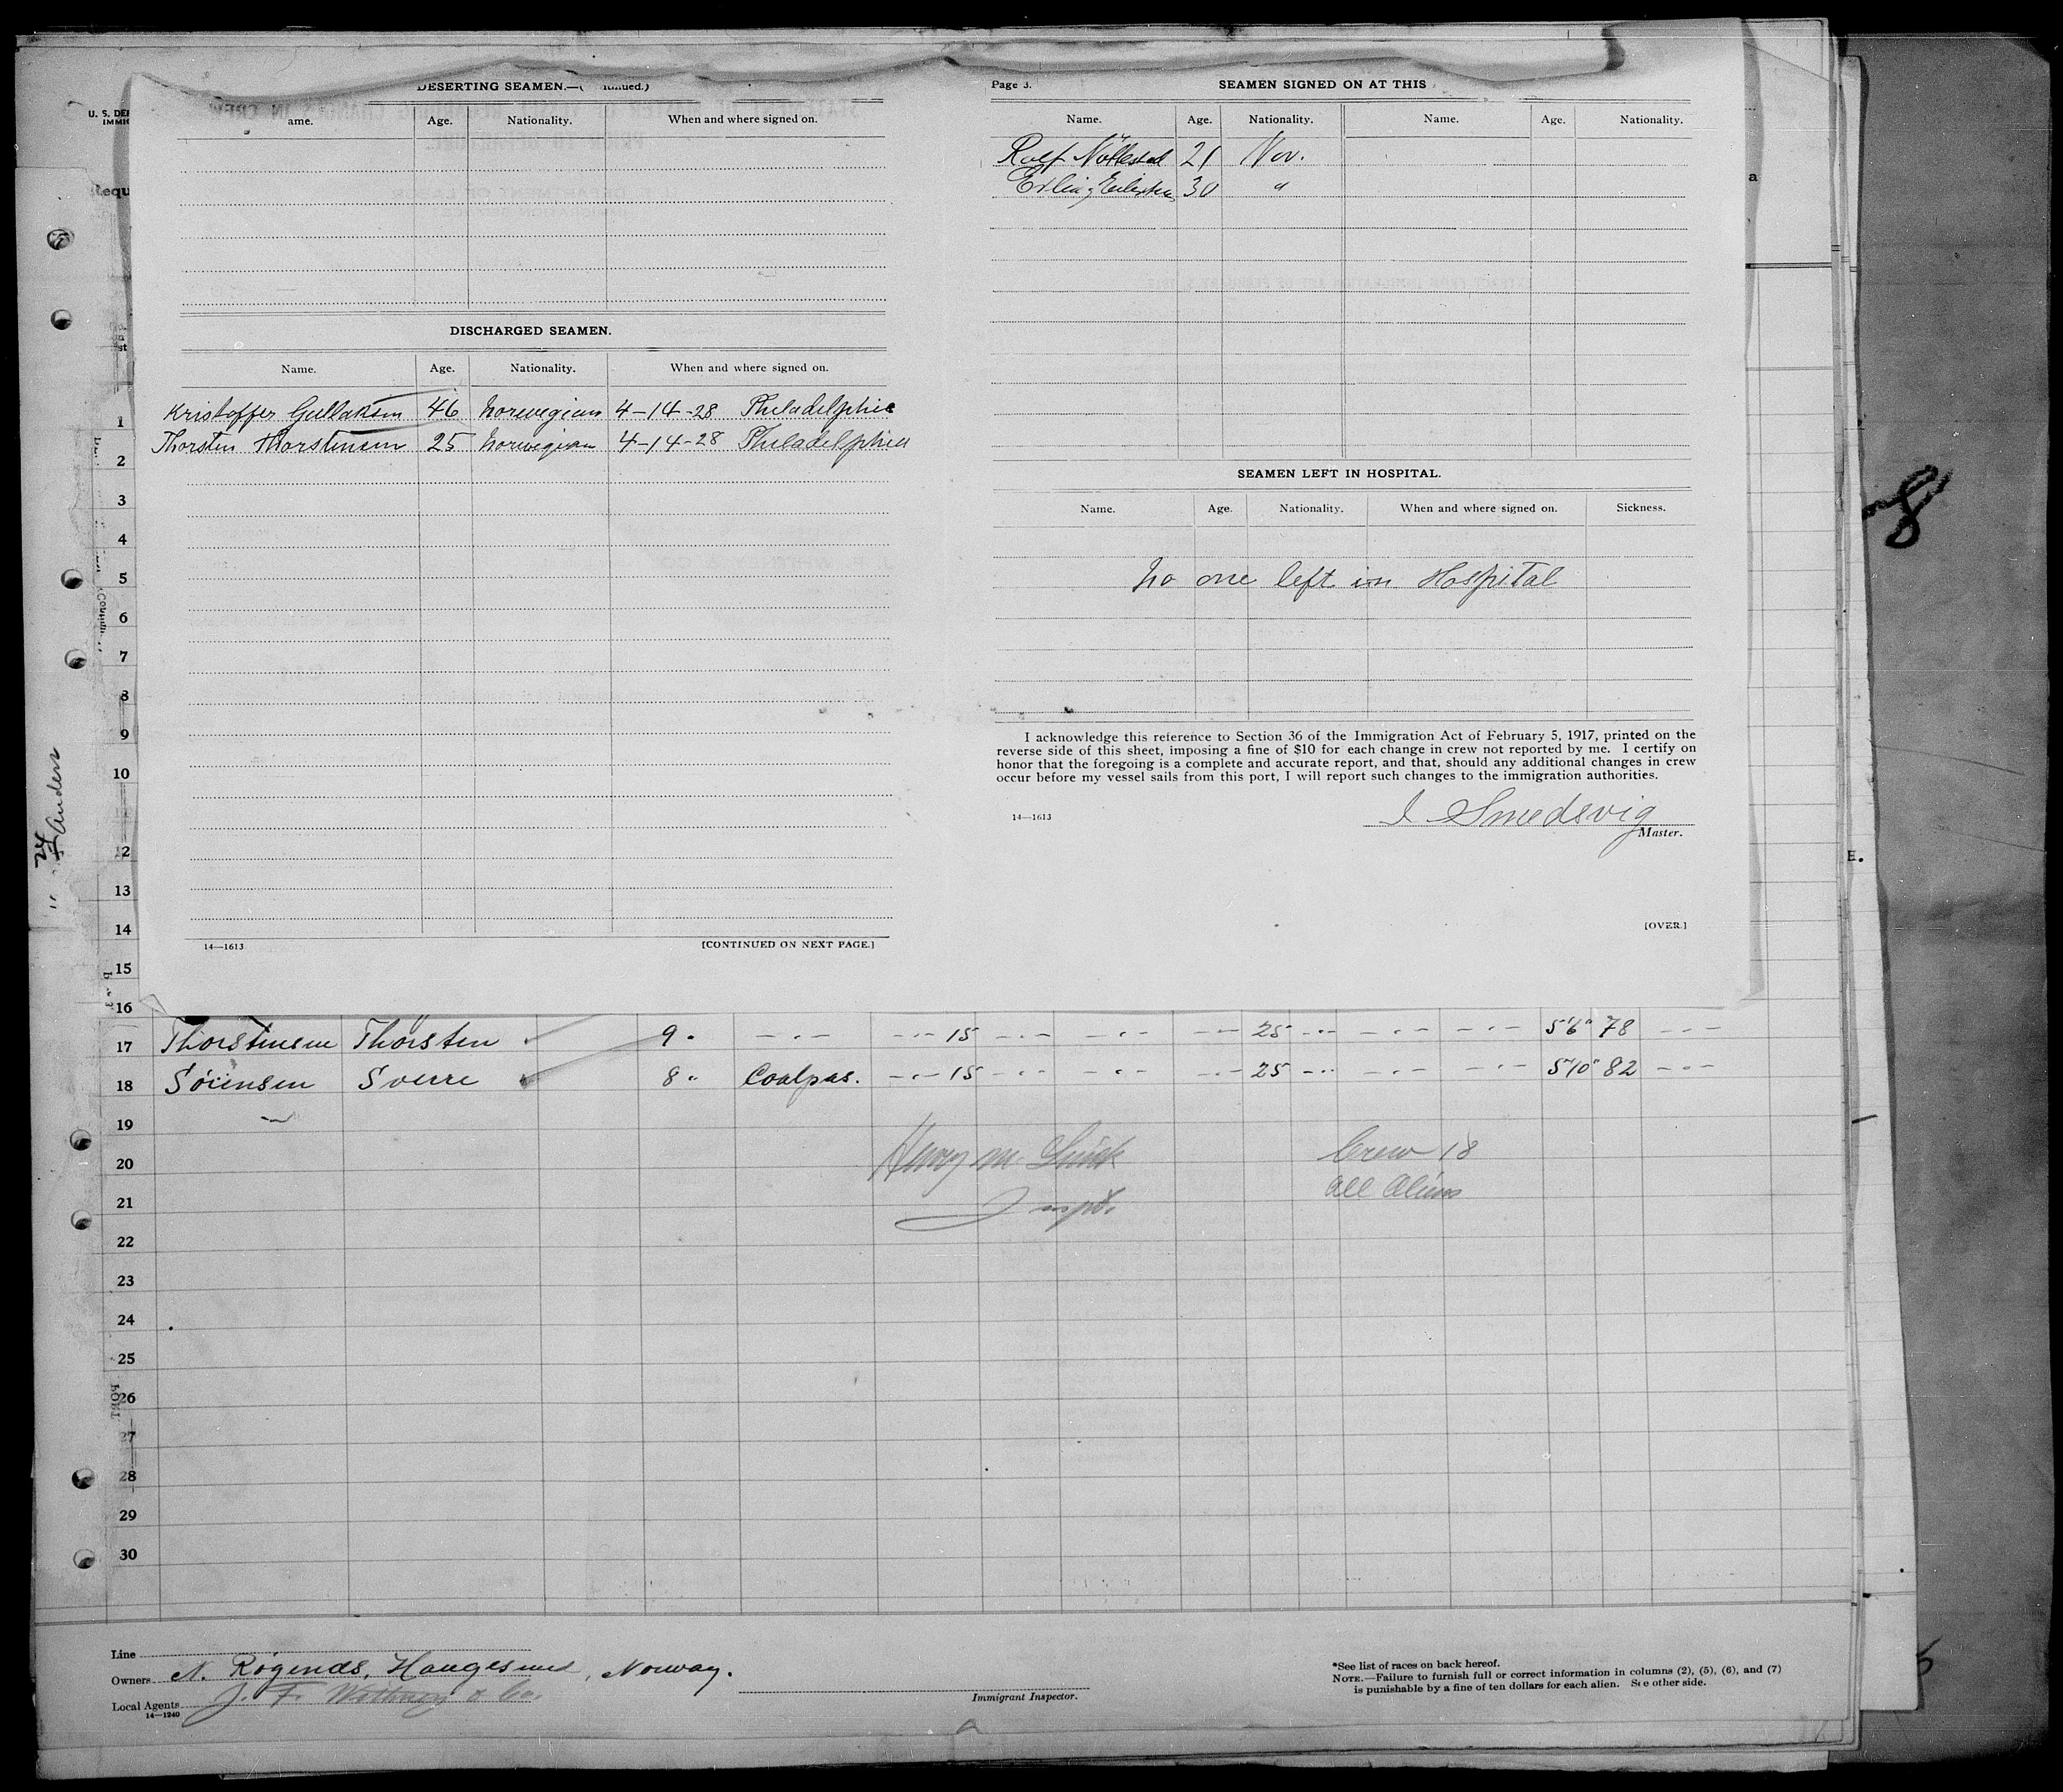 DESERTING SEAMEN.—( tinued.)
ame. Age. Nationality. When and where signed on.
DISCHARGED SEAMEN.
Name. Age. Nationality. When and where signed on.
Kristoffer Gullaksen 46 Norwegian 4-14-28 Philadelphia
Thorsten Thorstensen 25 Norwegian 4-14-28 Philadelphia
14—1613 [CONTINUED ON NEXT PAGE.]
Page 3. SEAMEN SIGNED ON AT THIS
Name. Age. Nationality. Name. Age. Nationality.
Rolf 21 Nor.
Erling 30 "
SEAMEN LEFT IN HOSPITAL.
Name. Age. Nationality. When and where signed on. Sickness.
No one left in Hospital
I acknowledge this reference to Section 36 of the Immigration Act of February 5, 1917, printed on the
reverse side of this sheet, imposing a fine of $10 for each change in crew not reported by me. I certify on
honor that the foregoing is a complete and accurate report, and that, should any additional changes in crew
occur before my vessel sails from this port, I will report such changes to the immigration authorities.
14—1613 I Smedsvig
Master.
[OVER.]
U. S. DE
IMMIG
Requ
1
2
3
4
5
6
7
8
9
10
12
13
14
15
16
17 Thorstensen Thorsten 9 " - " - - " - 15 - " - - " - - " - 25 - " - - " - - " - 5'6" 78 - " -
18 Sörensen Sverre 8 " Coalpas. - " - 15 - " - - " - - " - 25 - " - - " - - " - 5'10" 82 - " -
19
20 Henry M. Crew 18
21 Inspt. All Aliens
22
23
24
25
26
27
28
29
30
Line
Owners N. Rögends, Haugesund, Norway.
Local Agents J. F. & Co.
14—1240
Immigrant Inspector.
*See list of races on back hereof.
NOTE.—Failure to furnish full or correct information in columns (2), (5), (6), and (7)
is punishable by a fine of ten dollars for each alien. See other side.
24
" Anders
8
E.
a